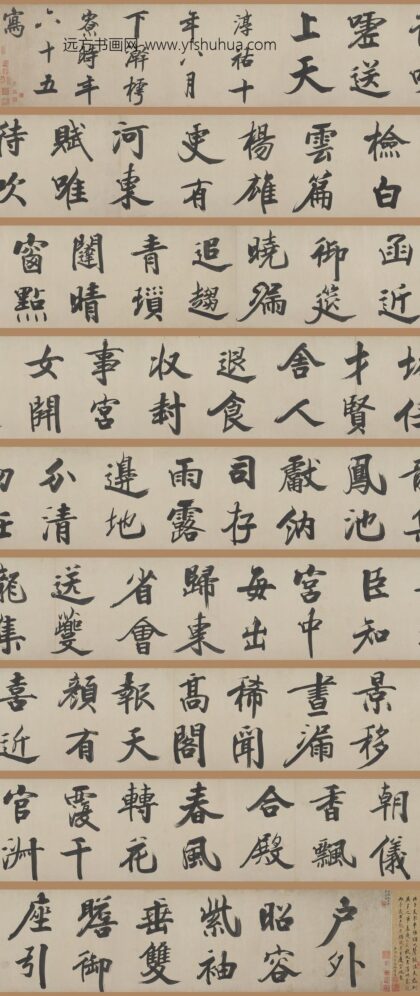 远方书画网 www.yfshuhua.com
户外
昭容
紫袖
垂雙
瞻御
座引
朝儀
香飄
合殿
春風
轉花
覆千
官淑
景移
晝漏
稀聞
高閣
報天
顏有
喜近
臣知
宮中
每出
歸東
省會
送夔
龍集
鳳池
獻納
司存
雨露
邊地
分清
切任
才賢
舍人
退食
收封
事宮
女開
函近
御筵
曉漏
追趨
青瑣
闥晴
窗點
檢白
雲篇
楊雄
更有
河東
賦唯
待吹
噓送
上天
淳祐十
年八月
下澣樗
寮時年
六十五
寫